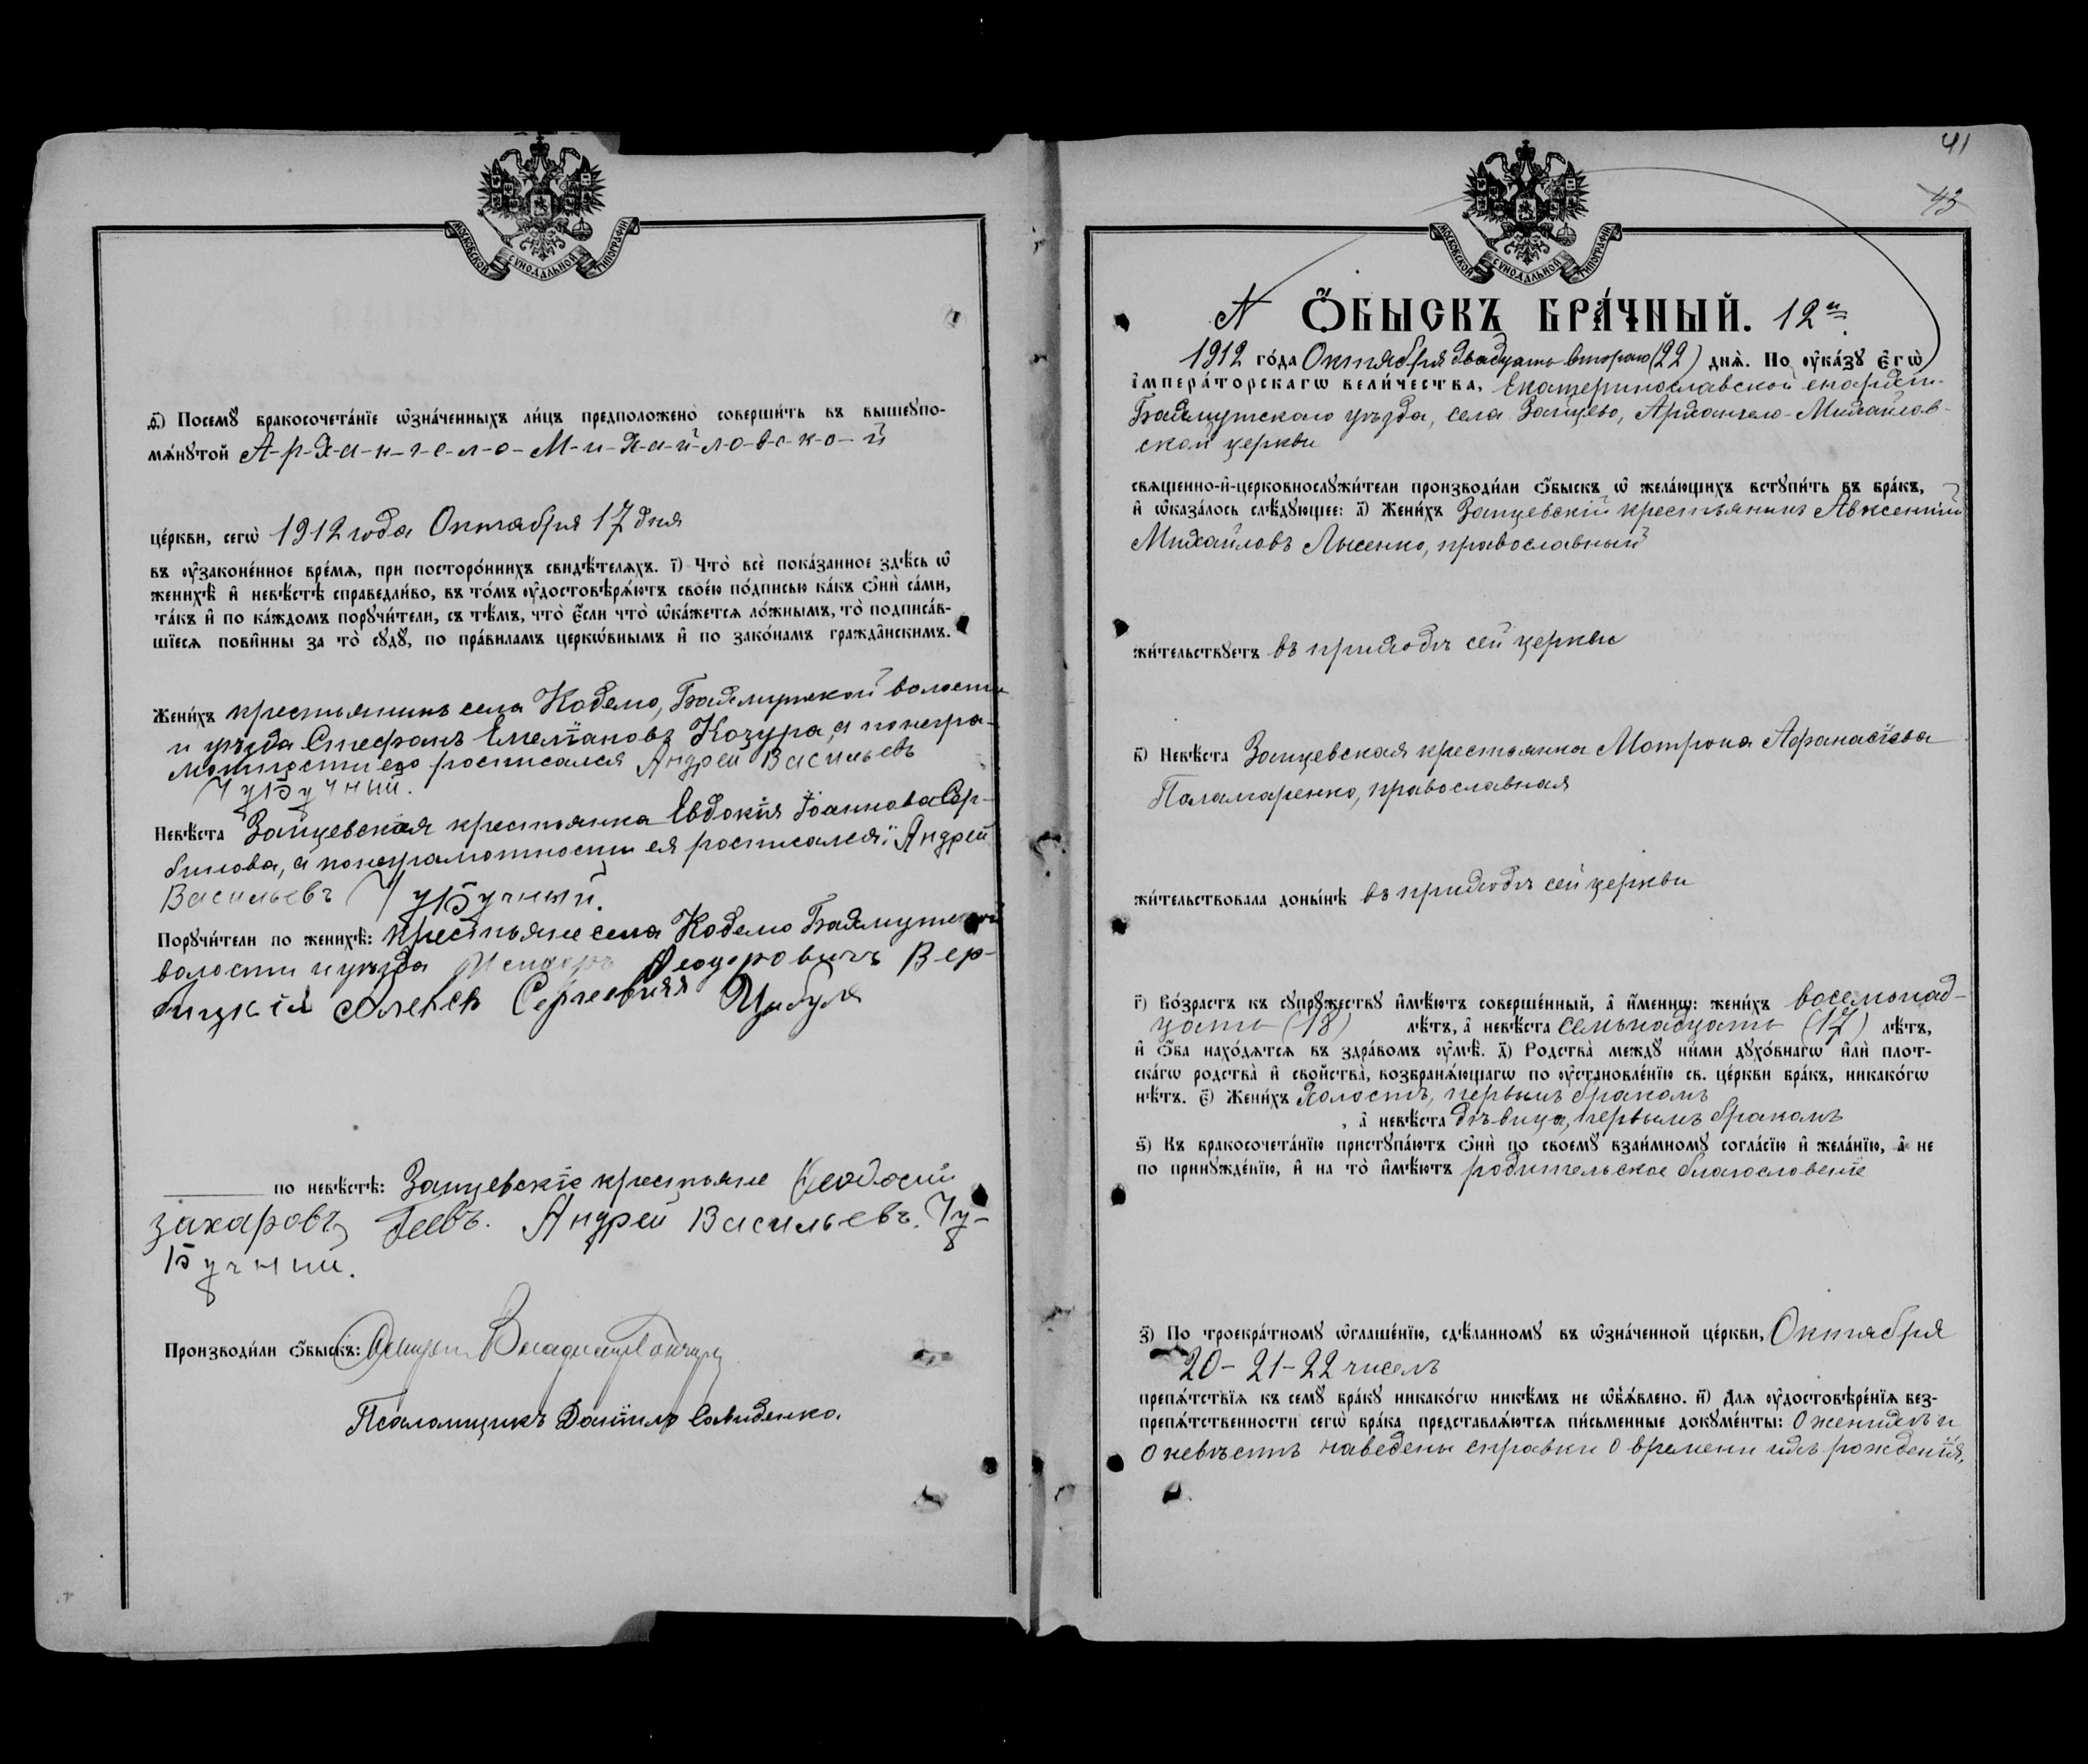 МОСКОВСКОЙ СУНОДАЛЬНОЙ ТИПОГРАФІИ
ѳ҃) Посемꙋ̀ бракосочета́нїе ѡ҆зна́ченныхъ ли́цъ предположено̀ соверши́ть въ вышеꙋпо-
мѧ́нꙋтой А-р-х-а-н-г-е-л-о-М-и-х-а-й-л-о-в-с-к-о-й
це́ркви, сегѡ̀ 1912 года Октября 17 дня
въ ᲂу҆зако́ненное вре́мѧ, при посторо́ннихъ свидѣ́телѧхъ. і҃) Что̀ всѐ пока́занное здѣ́сь ѡ҆
женихѣ̀ и҆ невѣ́стѣ справедли́во, въ то́мъ ᲂу҆достовѣрѧ́ютъ свое́ю по́дписью ка́къ ѻ҆нѝ са́ми,
та́къ и҆ по ка́ждомъ порꙋчи́тели, съ тѣ́мъ, что̀ є҆́сли что̀ ѡ҆ка́жетсѧ ло́жнымъ, то̀ подписа́в-
шїесѧ пови́нны за то̀ сꙋдꙋ̀, по пра́виламъ церко́внымъ и҆ по зако́намъ гражда́нскимъ.
Жени́хъ крестьянинъ села Кодемо, Бахмутской волости
и уѣзда Стефанъ Емеліановъ Козура, а по негра-
мотности его росписался Андрей Васильевъ
Чубучный.
Невѣ́ста Зайцевская крестьянка Евдокія Іоаннова Сер-
билова, а по неграмотности ея росписался: Андрей
Васильевъ Чубучный.
Порꙋчи́тели по женихѣ̀: крестьяне села Кодемо Бахмутской
волости и уѣзда Феодоровичъ Вер-
бицкій Алексѣ Сергеевичя Цыбуля
по невѣ́стѣ: Зайцевскіе крестьяне Феодосій
Захаровъ Геевъ. Андрей Васильевъ. Чу-
бучный.
Производи́ли ѻ҆́быскъ:
Псаломщикъ Даніилъ Савиденко.
41
43
МОСКОВСКОЙ СУНОДАЛЬНОЙ ТИПОГРАФІИ
N ѺБЫСКЪ БРА́ЧНЫЙ. 12й
1912 го́да Октября двадцать втораго (22) днѧ̀. По ᲂу҆ка́зꙋ є҆гѡ̀
і҆мпера́торскагѡ вели́чества, Екатеринославской епархіи
Бахмутскаго уѣзда, села Зайцево, Архангело-Михайлов-
ской церкви
свѧщенно-и҆-церковнослꙋжи́тели производи́ли ѻ҆́быскъ ѡ҆ жела́ющихъ встꙋпи́ть въ бра́къ,
и҆ ѡ҆каза́лось слѣ́дꙋющее: а҃) Жени́хъ Зайцевскій крестьянинъ Авксентій
Михайловъ Лысенко, православный
жи́тельствꙋетъ въ приходѣ сей церкви
в҃) Невѣ́ста Зайцевская крестьянка Мотрона Аѳанасіева
Паламаренко, православная
жи́тельствовала доны́нѣ въ приходѣ сей церкви
г҃) Во́зрастъ къ сꙋпрꙋ́жествꙋ и҆мѣ́ютъ соверше́нный, а҆ и҆́менно: жени́хъ восемьнад-
цать (18) лѣ́тъ, а҆ невѣ́ста семьнадцать (17) лѣ́тъ,
и҆ ѻ҆́ба нахо́дѧтсѧ въ здра́вомъ ᲂу҆мѣ̀. д҃) Родства̀ междꙋ̀ ни́ми дꙋхо́внагѡ и҆лѝ плот-
ска́гѡ родства̀ и҆ сво́йства̀, возбранѧ́ющагѡ по ᲂу҆становле́нїю св. це́ркви бра́къ, никако́гѡ
нѣ́тъ. є҃) Жени́хъ холостъ, первымъ бракомъ
, а҆ невѣ́ста дѣвица, первымъ бракомъ
ѕ҃) Къ бракосочета́нїю пристꙋпа́ютъ ѻ҆нѝ по своемꙋ̀ взаи́мномꙋ согла́сїю и҆ жела́нїю, а҆ не
по принꙋжде́нїю, и҆ на то̀ и҆мѣ́ютъ родительское благословеніе
з҃) По троекра́тномꙋ ѡ҆глаше́нїю, сдѣ́ланномꙋ въ ѡ҆зна́ченной це́ркви, Октября
20-21-22 чиселъ
препѧ́тствїѧ къ семꙋ̀ бра́кꙋ никако́гѡ никѣ́мъ не ѡ҆б̾ѧ́влено. и҃) Длѧ ᲂу҆достовѣре́нїѧ без-
препѧ́тственности сегѡ̀ бра́ка представлѧ́ютсѧ пи́сьменные докꙋме́нты: О женихѣ и
о невѣстѣ наведены справки о времени ихъ рожденія.